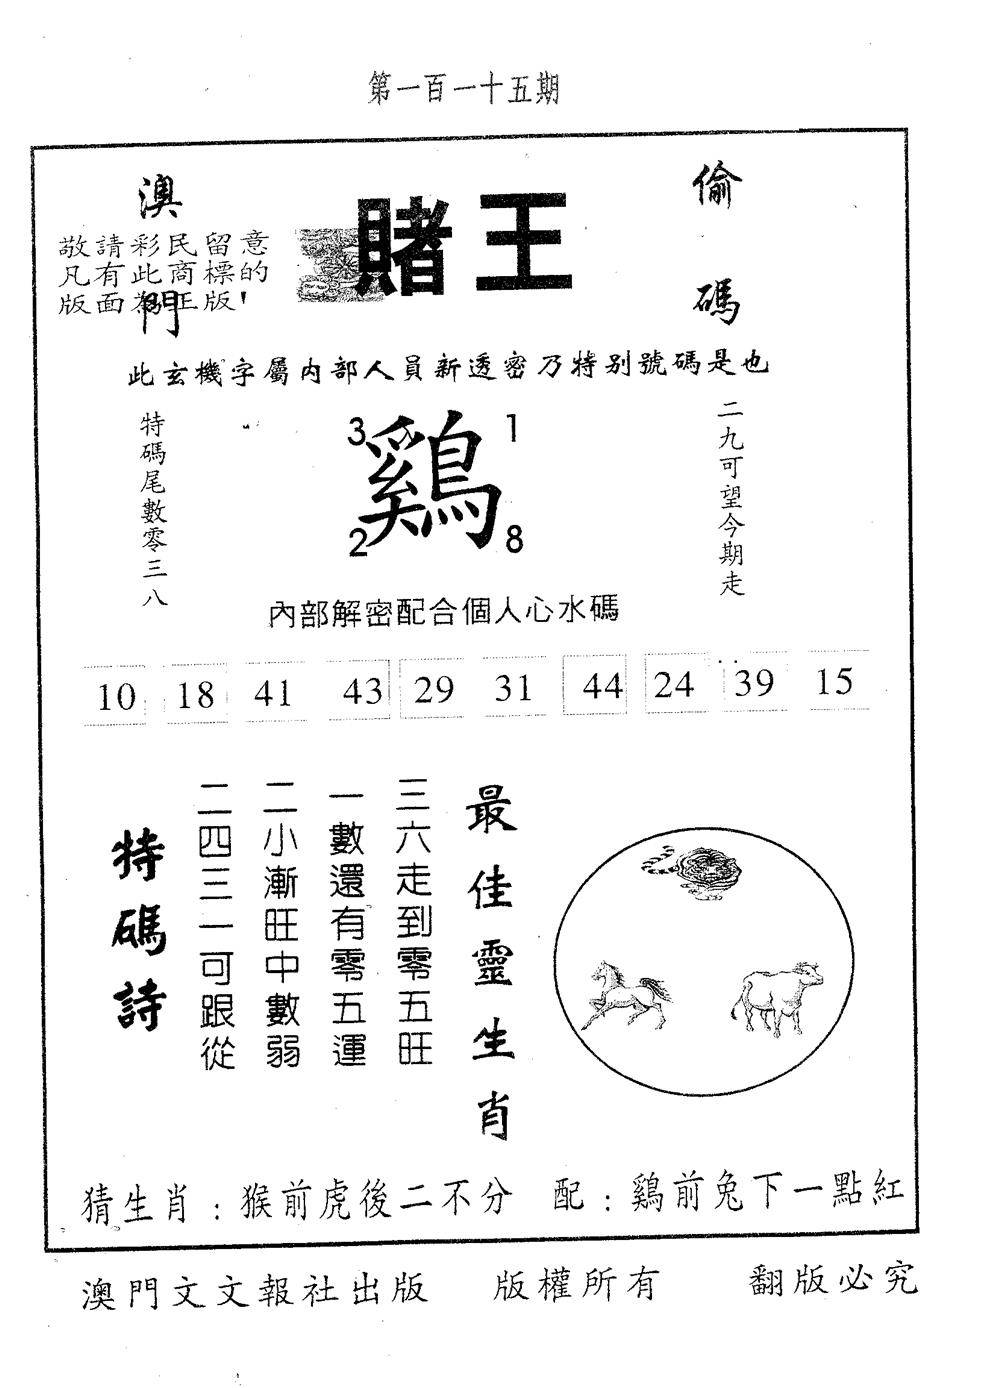 第一百一十五期
澳門
賭王
偷碼
敬請彩民留意
凡有此商標的
版面為正版!
此玄機字屬內部人員新透密乃特别號碼是也
特碼尾數零三八
3
1
鷄
2
8
二九可望今期走
內部解密配合個人心水碼
10 18 41 43 29 31 44 24 39 15
最佳靈生肖
三六走到零五旺
一數還有零五運
二小漸旺中數弱
二四三一可跟從
特碼詩
猜生肖:猴前虎後二不分 配:鷄前兔下一點紅
澳門文文報社出版 版權所有 翻版必究